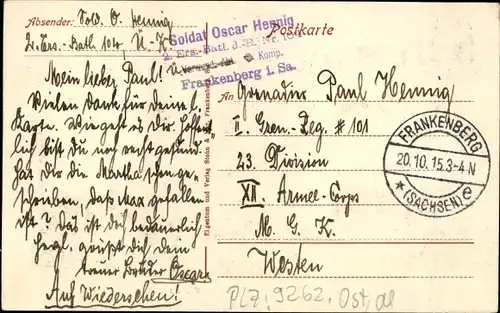 Absender: Sold. O. Hennig
2. Ers.-Batl. 104 Ü.-K.
Soldat Oscar Hennig
2. Ers.-Batl. J.R. Nr. 104
Komp.
Frankenberg i. Sa.
Postkarte
Mein lieber Paul!
Vielen Dank für deine l.
Karte. Wie geht es Dir hoffent
lich bist Du noch recht gesund.
Hat Dir die Martha schon ge-
schrieben, daß Max gefallen
ist? Das ist doch bedauerlich
Herzl. grüßt dich dein
treuer Bruder Oscar.
Auf Wiedersehen!
Eigentum und Verlag
Frankenberg
An Grenadier Paul Hennig
II Gren.-Reg. # 101
23. Division
XII Armee-Corps
M. G. K.
Westen
FRANKENBERG
20.10.15.3-4N
* (SACHSEN) e
PLZ, 9262, Ost, al